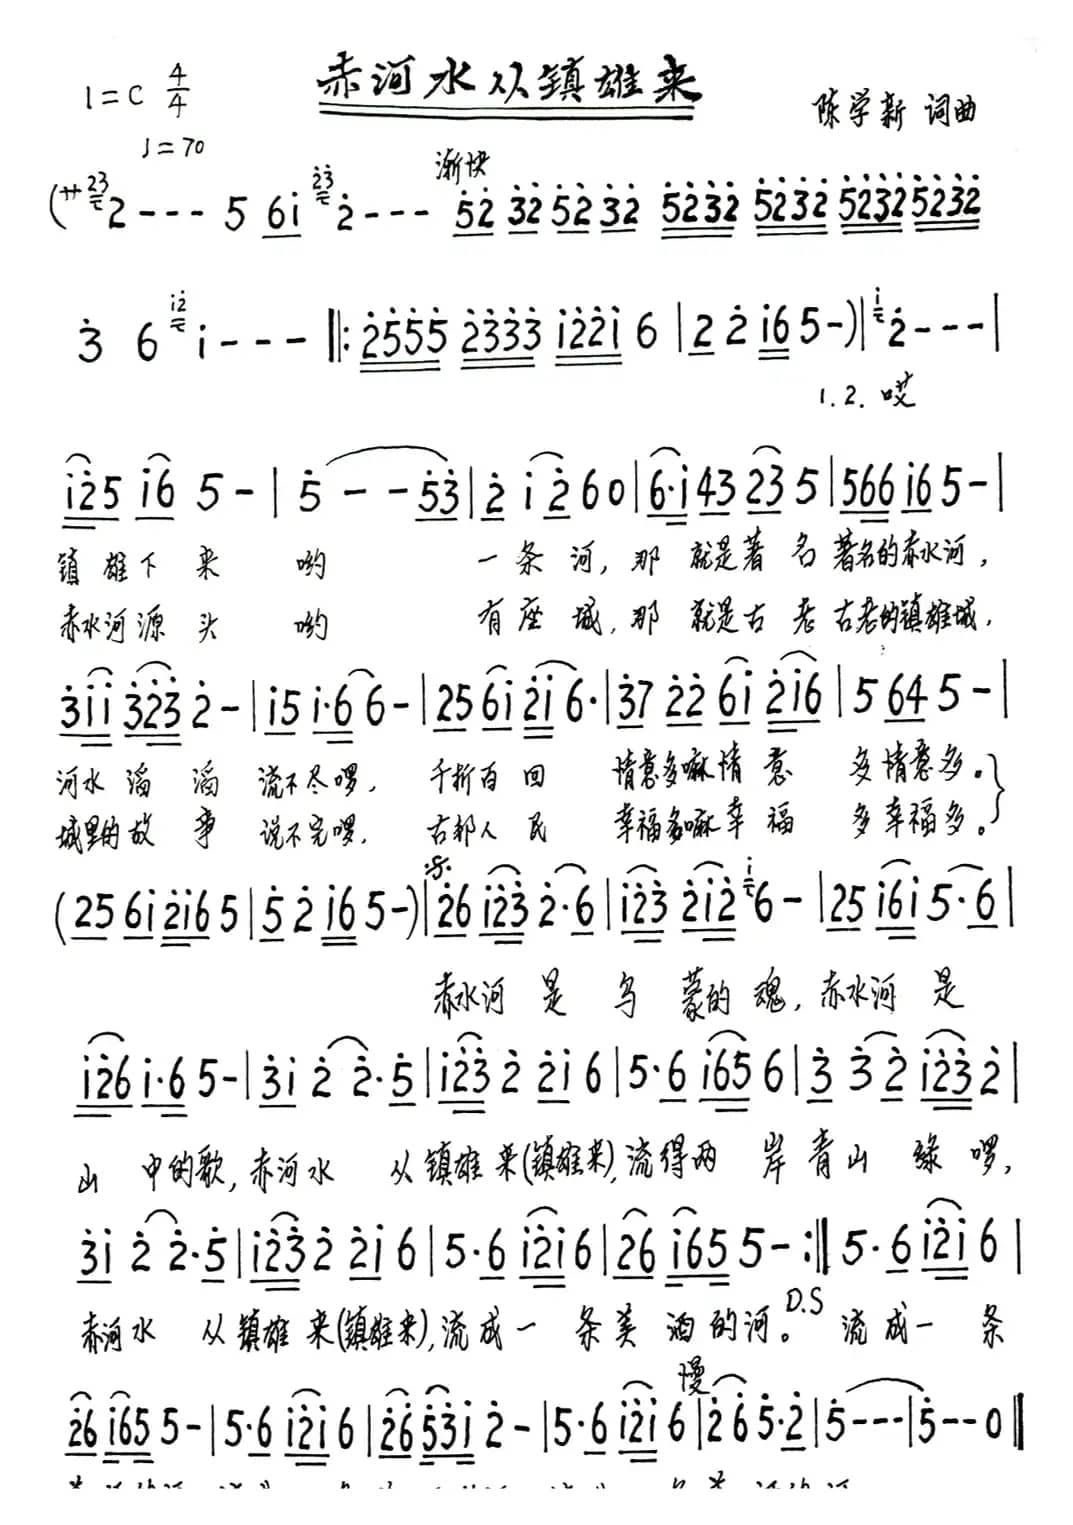 赤河水从镇雄来
1=C 4/4
♩=70
陈学新 词曲
渐快
(サ 23 2 - - - 5 6i 23 2 - - - 52 32 52 32 5232 5232 5232 5232
3 6 i2 i - - - ‖: 2555 2333 i22i 6 | 2 2 i6 5 - ) | i 2 - - - |
1.2. 哎
i25 i6 5 - | 5 - - 53 | 2 i 2 6 0 | 6·i 43 23 5 | 566 i6 5 - |
镇雄下来 哟 一条河,那就是著名著名的赤水河,
赤水河源头 哟 有座城,那就是古老古老的镇雄城,
3ii 323 2 - | i5 i·6 6 - | 25 6i 2i 6· | 37 22 6i 2i6 | 5 64 5 - |
河水滔滔流不尽啰,千折百回 情意多嘛情意 多情意多。
城里的故事说不完啰,古邦人民 幸福多嘛幸福 多幸福多。
(25 6i 2i6 5 | 5 2 i6 5 - ) | 26 i23 2·6 | i23 2i2 i 6 - | 25 i6i 5·6 |
赤水河是乌蒙的魂,赤水河是
i26 i·6 5 - | 3i 2 2·5 | i23 2 2i 6 | 5·6 i65 6 | 3 3 2 i23 2 |
山中的歌,赤河水 从镇雄来(镇雄来),流得两岸青山绿啰,
3i 2 2·5 | i23 2 2i 6 | 5·6 i2i 6 | 26 i65 5 - :‖ 5·6 i2i 6 |
赤河水 从镇雄来(镇雄来),流成一条美酒的河。D.S 流成一条
慢
26 i65 5 - | 5·6 i2i 6 | 26 53i 2 - | 5·6 i2i 6 | 26 5·2 | 5 - - - | 5 - - 0 ‖